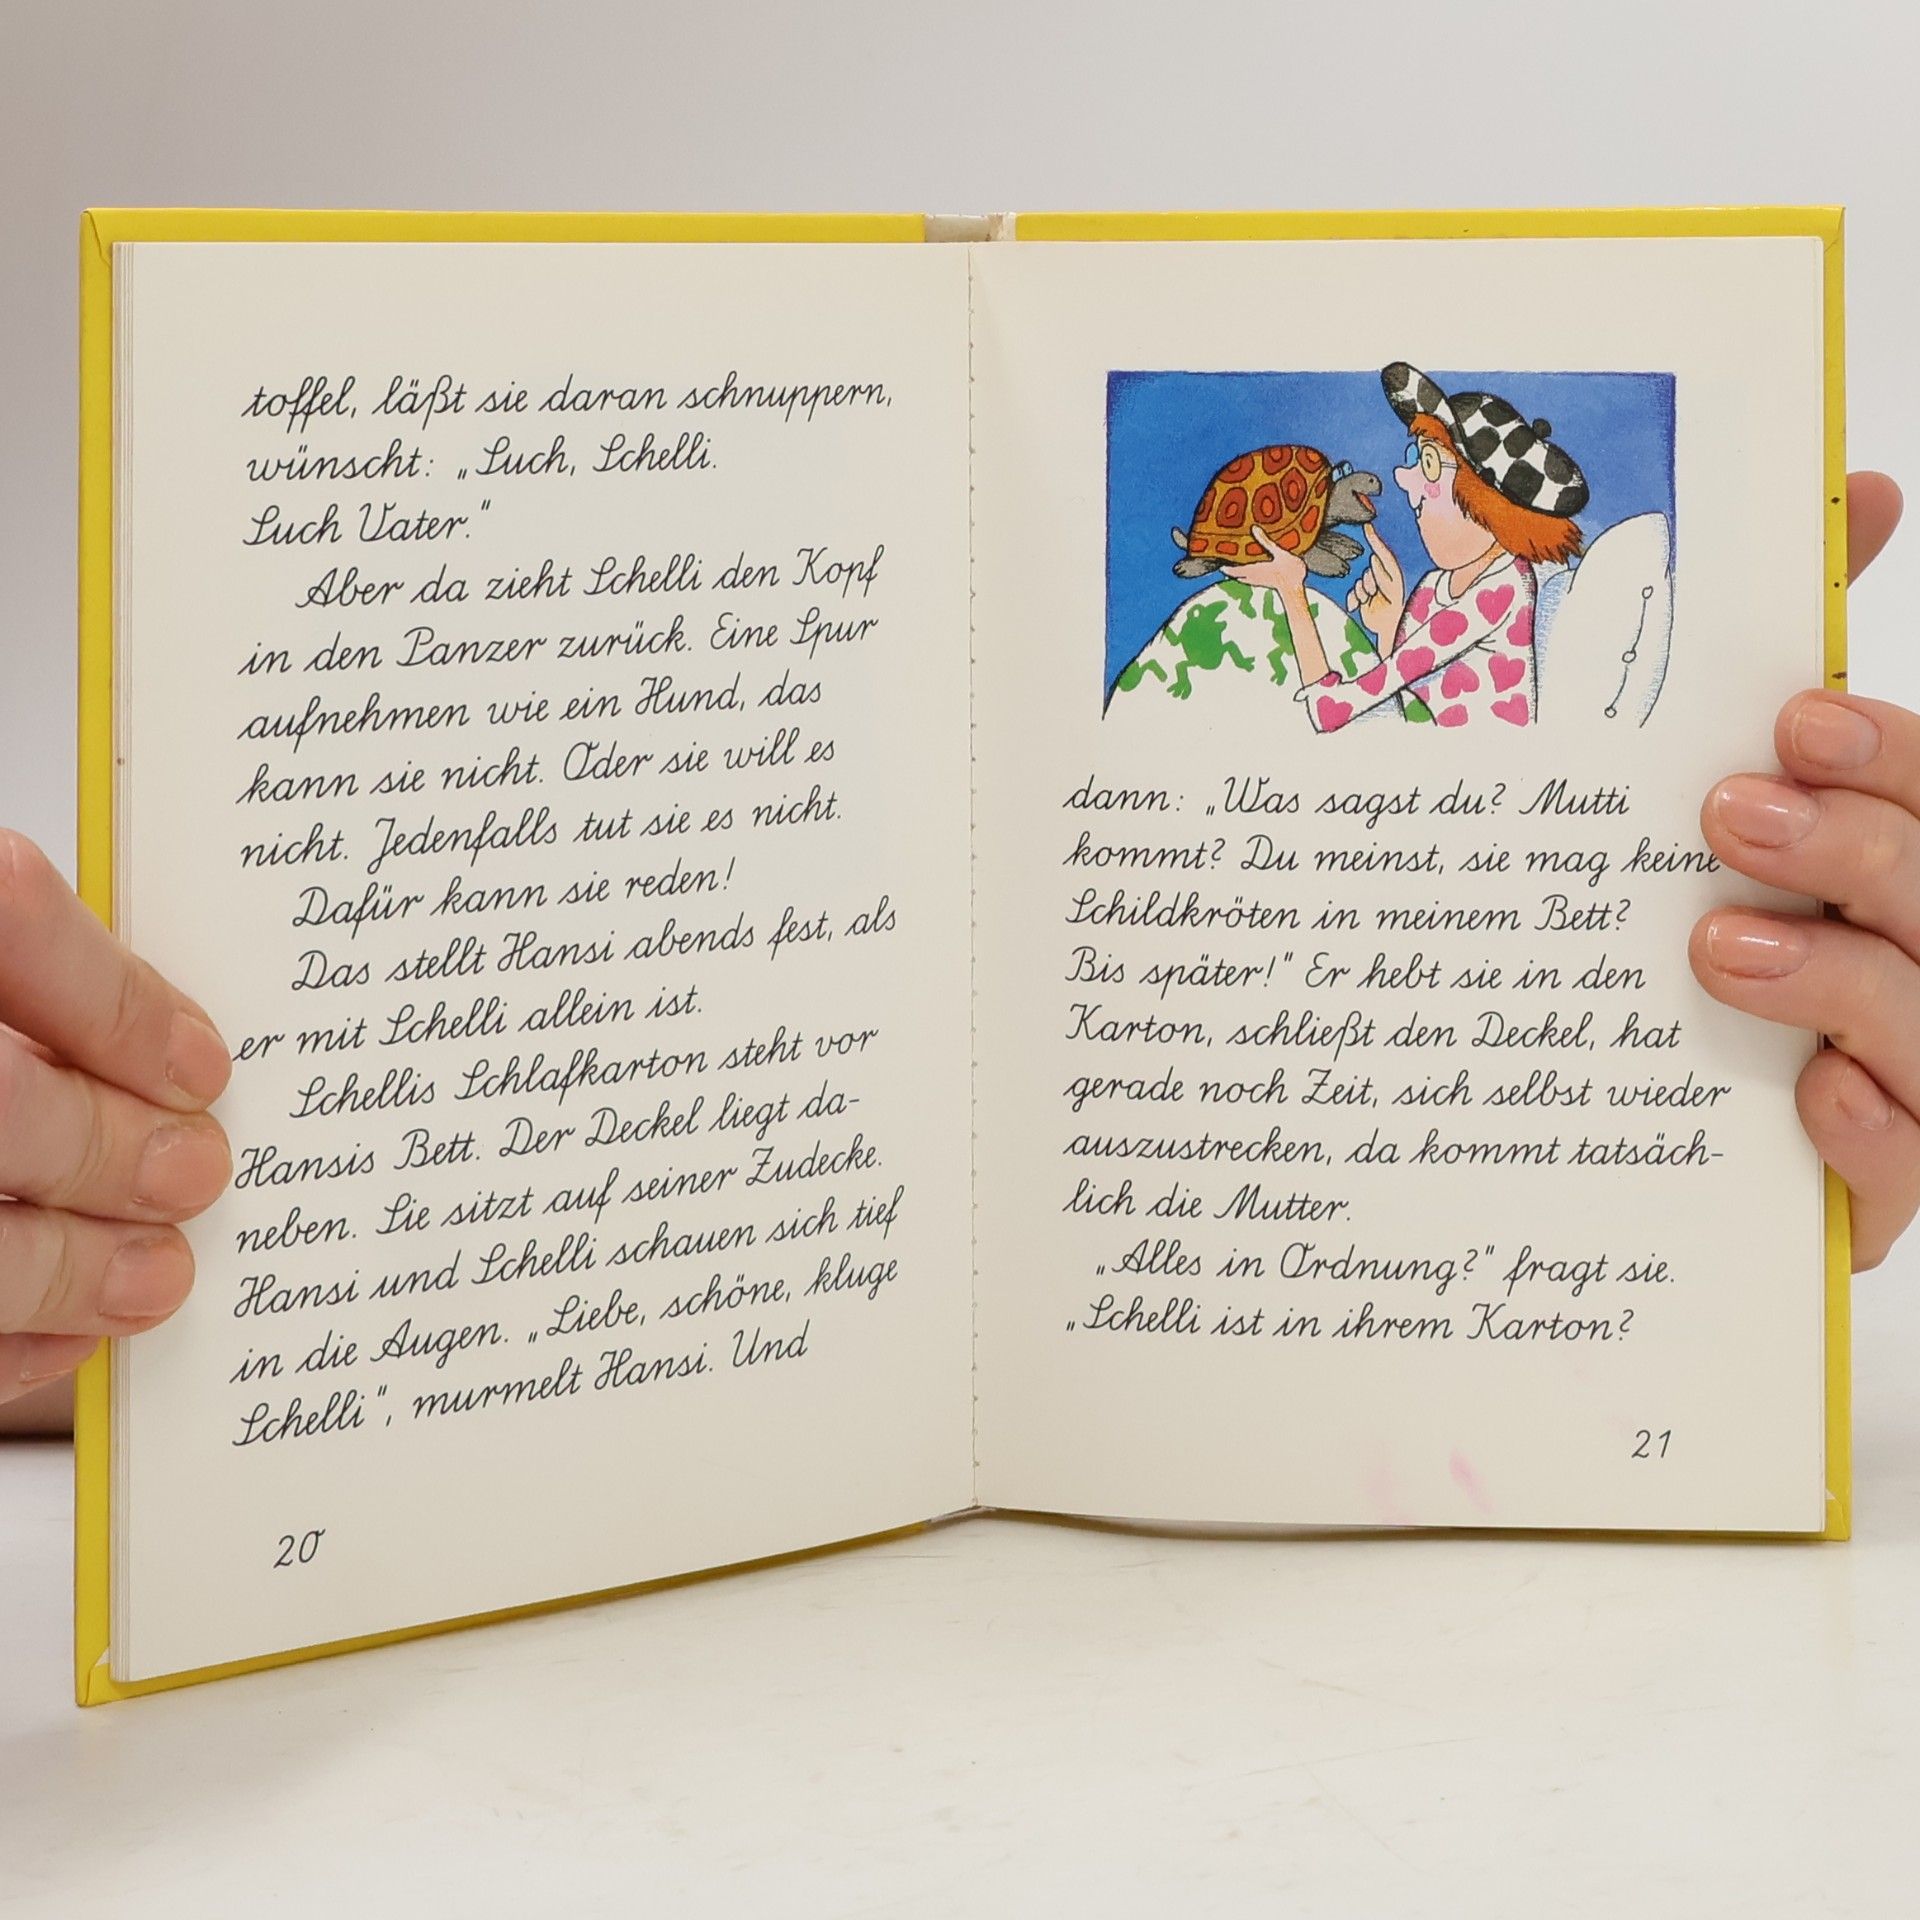 toffel, läßt sie daran schnuppern,
wünscht: „Such, Schelli.
Such Vater."
Aber da zieht Schelli den Kopf
in den Panzer zurück. Eine Spur
aufnehmen wie ein Hund, das
kann sie nicht. Oder sie will es
nicht. Jedenfalls tut sie es nicht.
Dafür kann sie reden!
Das stellt Hansi abends fest, als
er mit Schelli allein ist.
Schellis Schlafkarton steht vor
Hansis Bett. Der Deckel liegt da-
neben. Sie sitzt auf seiner Zudecke.
Hansi und Schelli schauen sich tief
in die Augen. „Liebe, schöne, kluge
Schelli", murmelt Hansi. Und
20
dann: „Was sagst du? Mutti
kommt? Du meinst, sie mag keine
Schildkröten in meinem Bett?
Bis später!" Er hebt sie in den
Karton, schließt den Deckel, hat
gerade noch Zeit, sich selbst wieder
auszustrecken, da kommt tatsäch-
lich die Mutter.
„Alles in Ordnung?" fragt sie.
„Schelli ist in ihrem Karton?
21